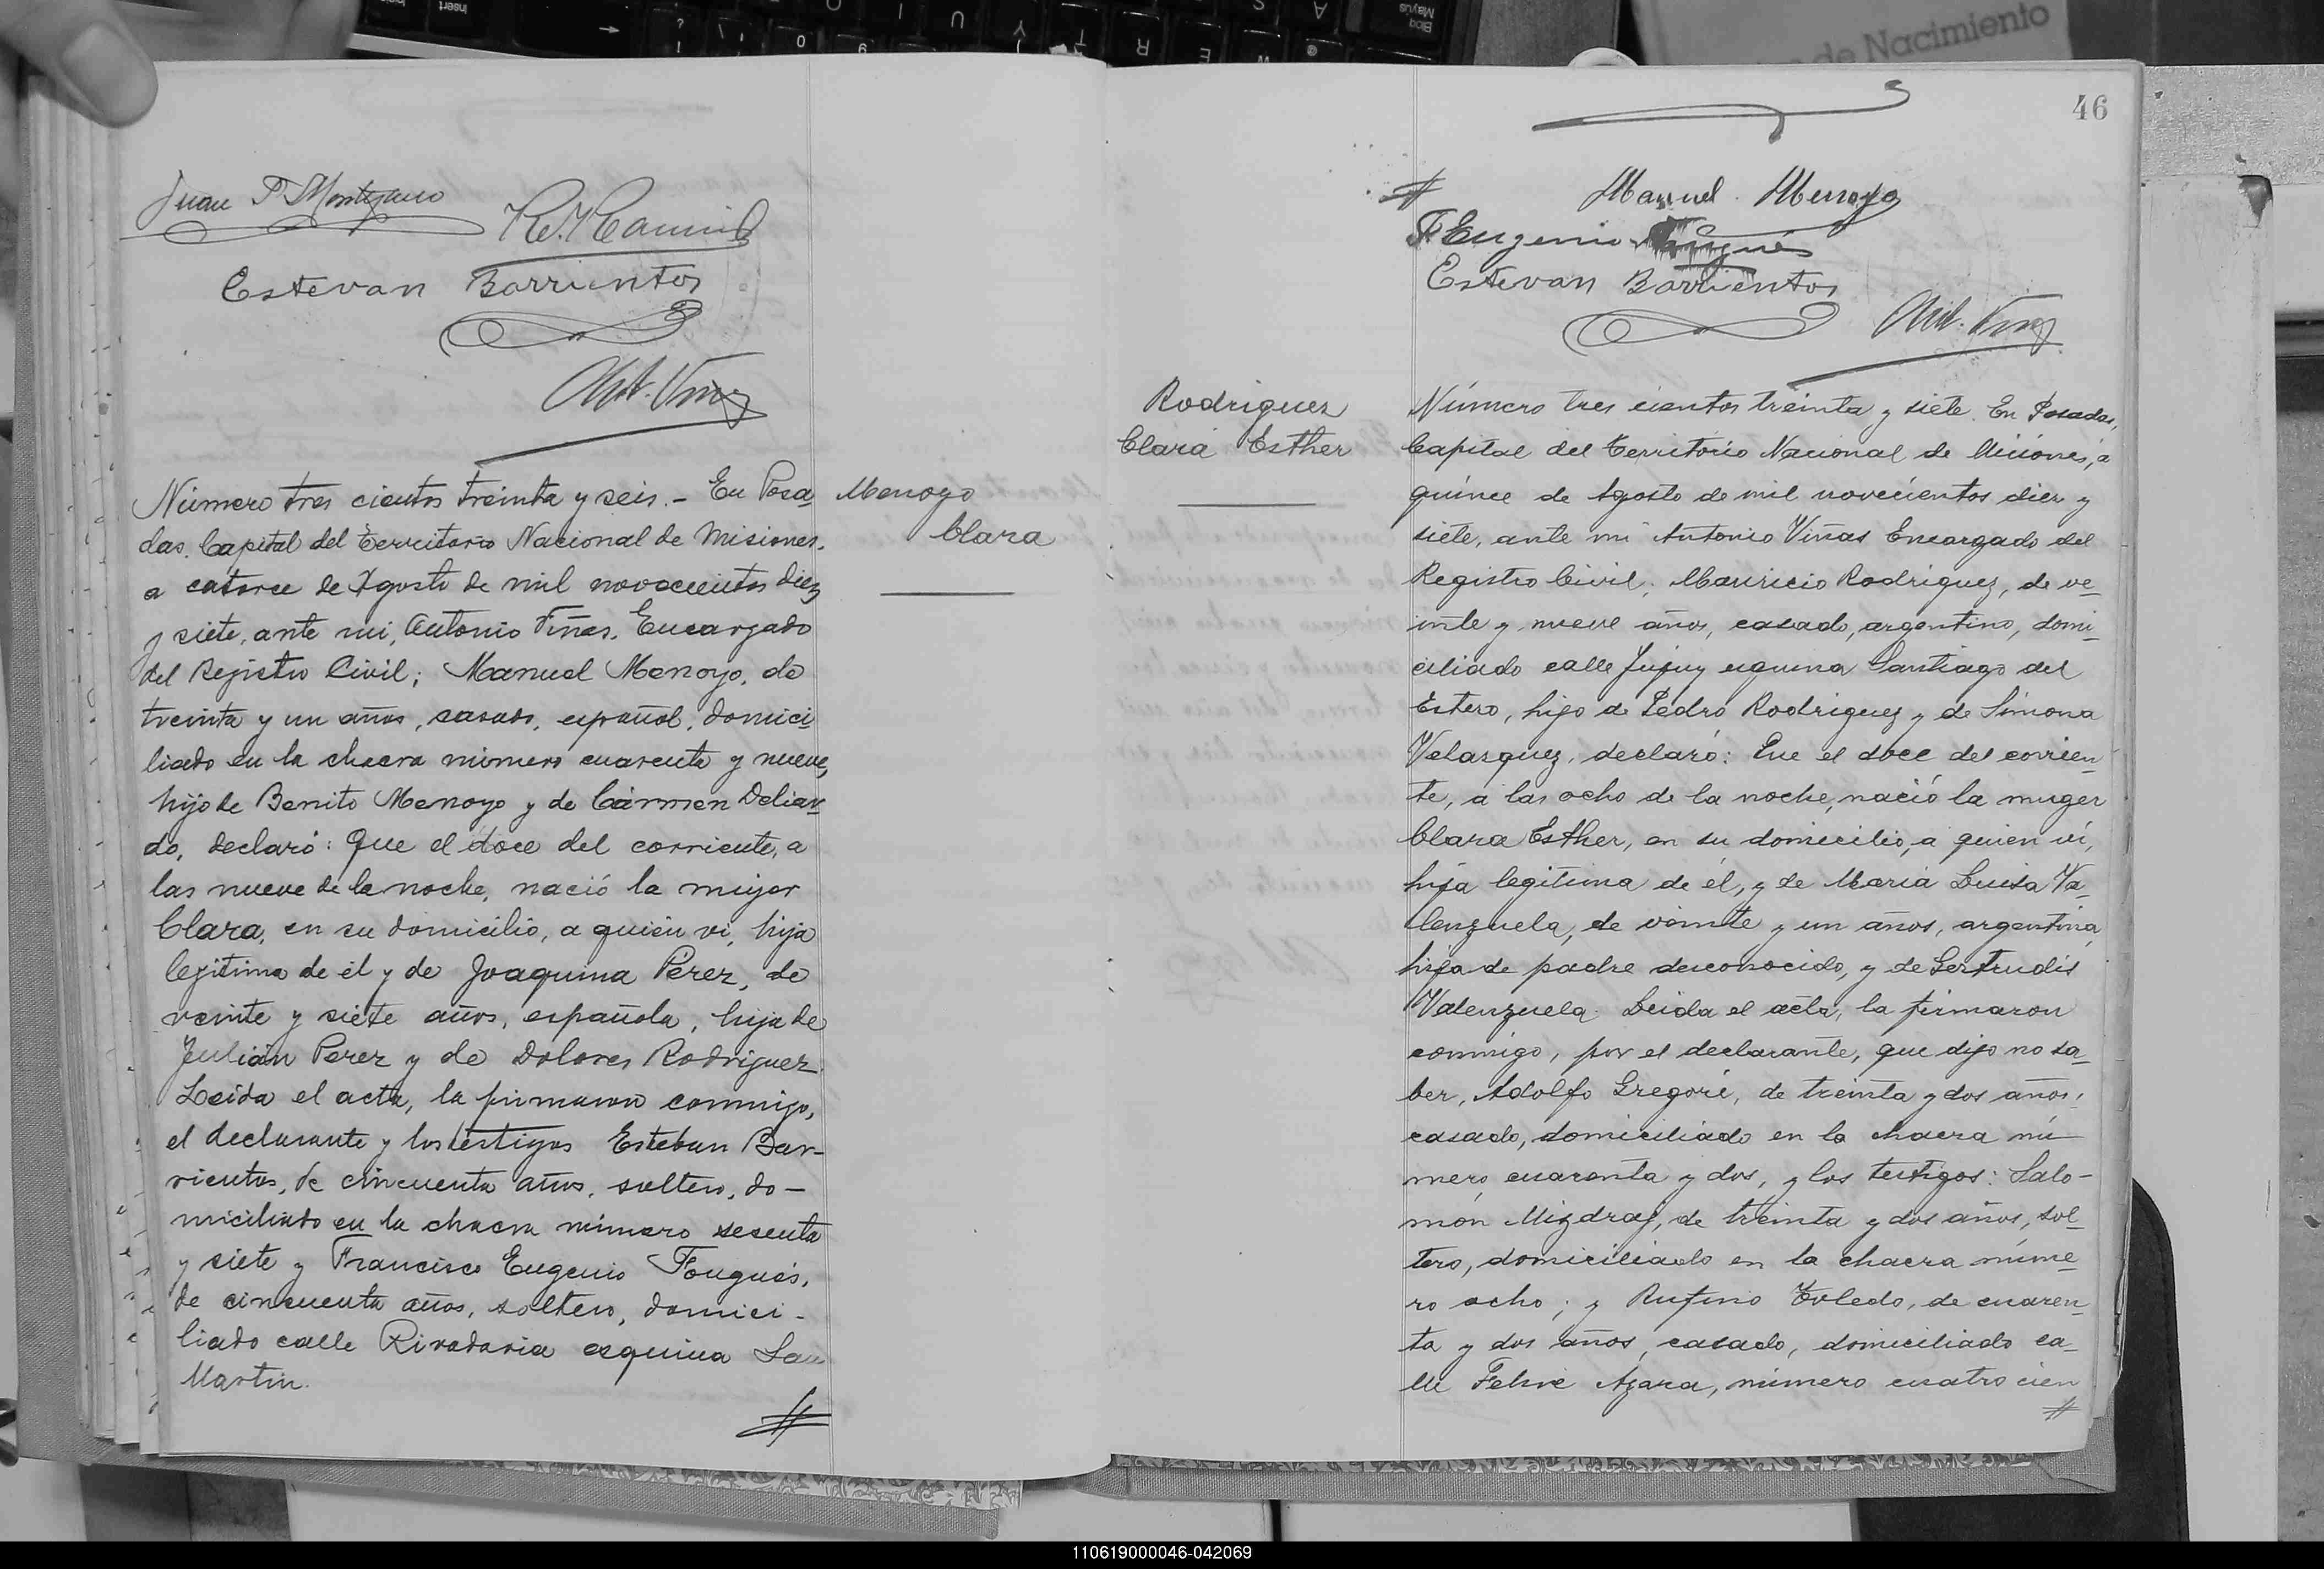 Juan P. Montejano
Estevan Barrientos
Ant. Viñas
Número tres cientos treinta y seis.- En Posa-
das. Capital del Territorio Nacional de Misiones.
a catorce de Agosto de mil novecientos diez
y siete, ante mi, Antonio Viñas, Encargado
del Registro Civil; Manuel Menoyo, de
treinta y un años, casado, español, domici-
liado en la chacra número cuarenta y nueve,
hijo de Benito Menoyo y de Cármen Delian-
do, declaró: Que el doce del corriente, a
las nueve de la noche, nació la mujer
Clara, en su domicilio, a quién vi, hija
legitima de él y de Joaquina Pérez, de
veinte y siete años, española, hija de
Julián Perez y de Dolores Rodriguez.
Leida el acta, la firmaron conmigo,
el declarante y los testigos Esteban Bar-
rientos, de cincuenta años, soltero, do-
miciliado en la chacra número sesenta
y siete y Francisco Eugenio Fougués,
de cincuenta años, soltero, domici-
liado calle Rivadavia esquina San
Martin.
#
Menoyo
Clara
de Nacimiento
46
# Manuel Menoyo
F Eugenio Fougués
Estevan Barrientos
Ant. Viñas
Rodriguez
Clara Esther
Número tres cientos treinta y siete. En Posadas,
Capital del Territorio Nacional de Misiones, á
quince de Agosto de mil novecientos diez y
siete, ante mi Antonio Viñas Encargado del
Registro Civil; Mauricio Rodriguez, de ve-
inte y nueve años, casado, argentino, domi-
ciliado calle Jujuy esquina Santiago del
Estero, hijo de Pedro Rodriguez y de Simona
Velasquez, declaró: Que el doce del corrien-
te, á las ocho de la noche, nació la muger
Clara Esther, en su domicilio, a quien ví,
hija legitima de él, y de Maria Luisa Va-
lenzuela, de veinte y un años, argentina,
hija de padre desconocido, y de Gertrudis
Valenzuela. Leida el acta, la firmaron
conmigo, por el declarante, que dijo no sa-
ber, Adolfo Gregori, de treinta y dos años,
casado, domiciliado en la chacra nú-
mero cuarenta y dos, y los testigos: Salo-
món Mizdraj, de treinta y dos años, sol-
tero, domiciliado en la chacra núme-
ro ocho; y Rufino Toledo, de cuaren-
ta y dos años, casado, domiciliado ca-
lle Felix Azara, número cuatro cien
#
110619000046-042069